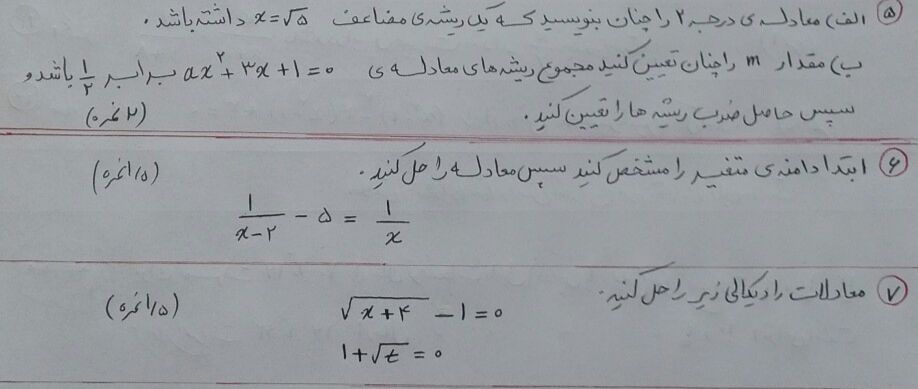 ۵ الف) معادله‌ی درجه ۲ را چنان بنویسید که یک ریشه‌ی مضاعف x=√۵ داشته باشد.
ب) مقدار m را چنان تعیین کنید مجموع ریشه‌های معادله‌ی ax²+۳x+۱=۰ برابر ۱/۲ باشد و
سپس حاصل ضرب ریشه‌ها را تعیین کنید. (۲ نمره)
۶ ابتدا دامنه‌ی متغیر را مشخص کنید سپس معادله را حل کنید. (۱/۵ نمره)
۱/(x-۲) - ۵ = ۱/x
۷ معادلات رادیکالی زیر را حل کنید. (۱/۵ نمره)
√(x+۴) - ۱ = ۰
۱+√t = ۰